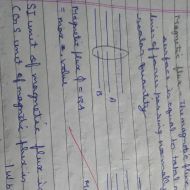 Magnetic flux
surface is equal to total
lines of force passing normally
scalar quantity
A
B
Magnetic flux φ =
= max a value
SI unit of magnetic flux is
CGS unit of magnetic flux is
1 Wb